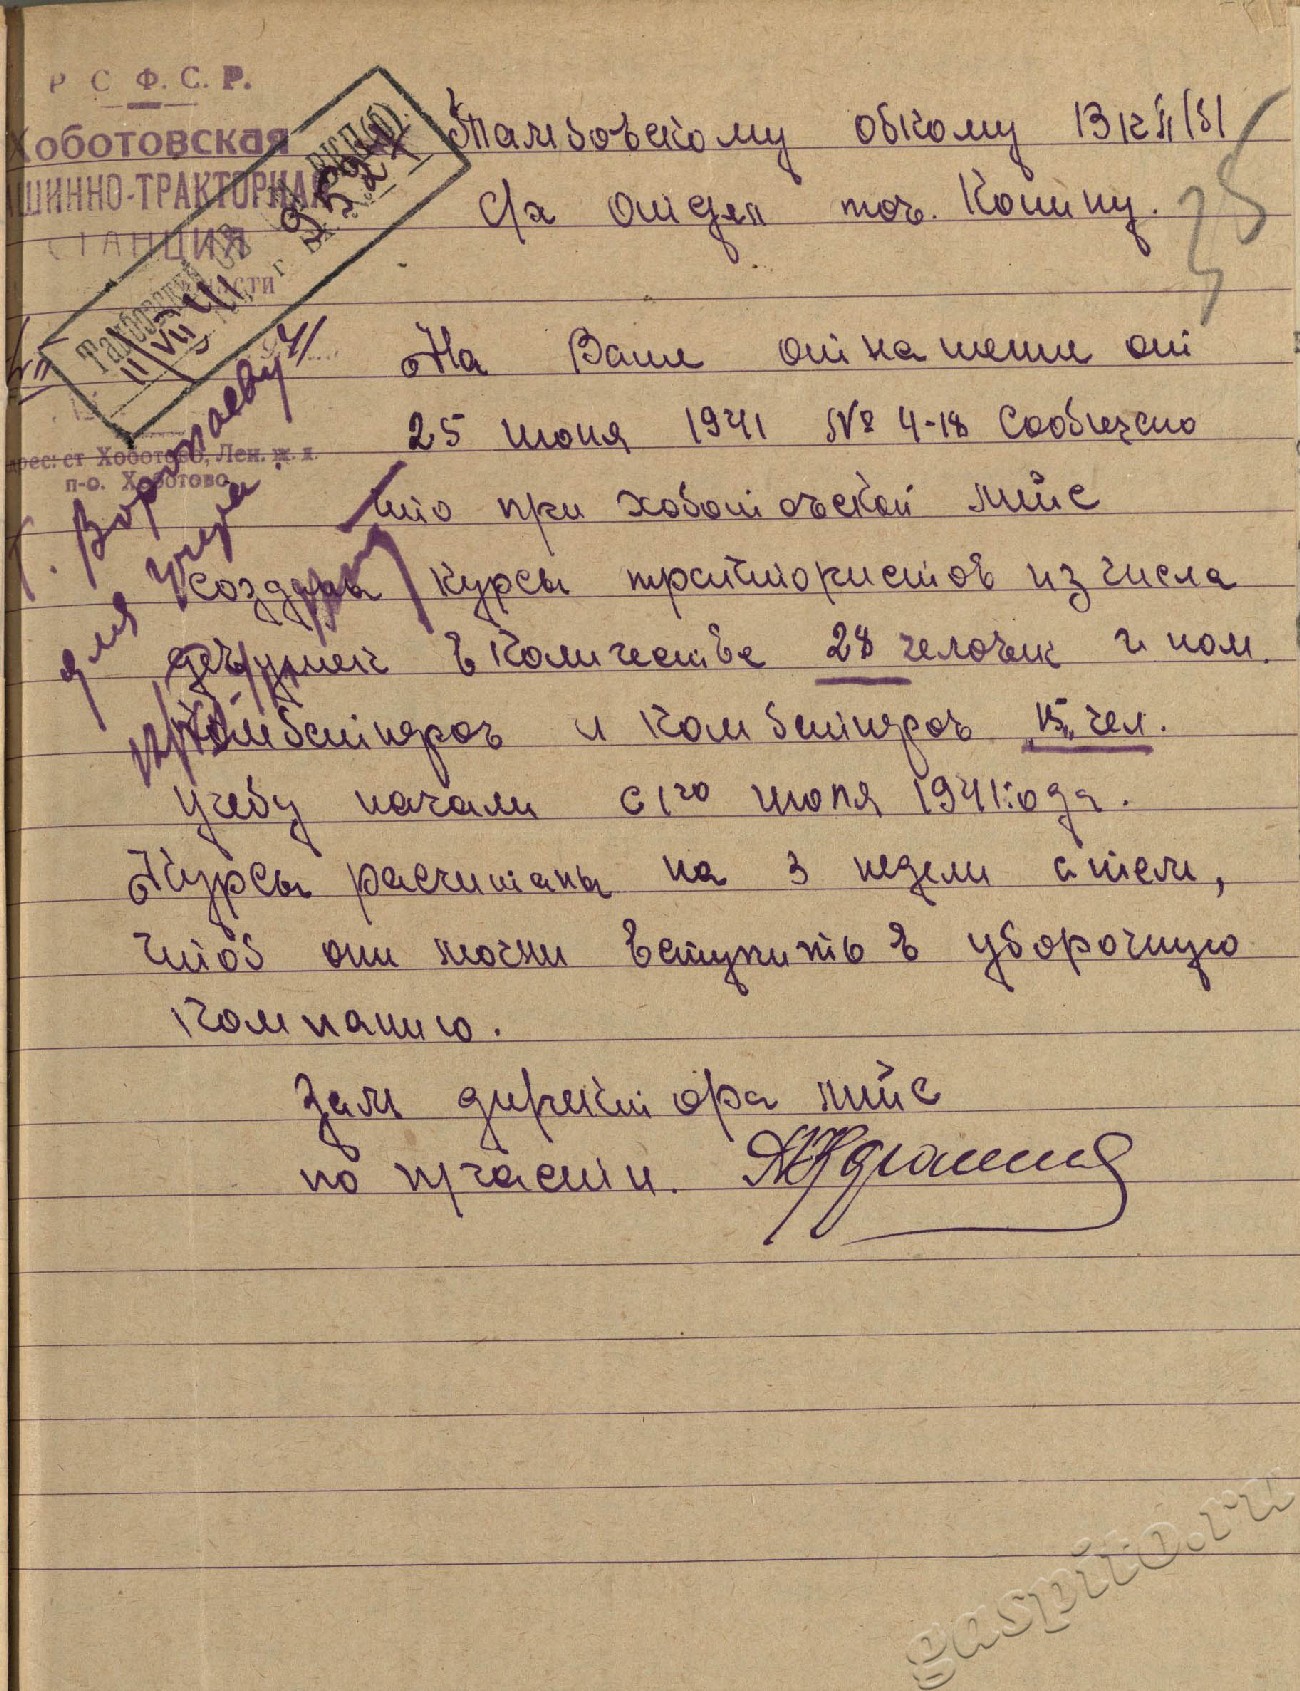 Р С Ф. С. Р.
Хоботовская
ШИННО-ТРАКТОРНАЯ
СТАНЦИЯ
ст Хоботово, Лен. ж. д.
п-о. Хоботово
Тамбовский
9527
11/VII 41
35
Т. Ворожаеву
для учета.
Тамбовскому обкому ВКП(б)
С/х отдел тов. Конину.
На Ваше отнашение от
25 июня 1941 № 4-18 Сообщено
что при хоботовской мтс
созданы курсы трактористов из числа
девушек в количестве 28 человек и пом.
комбайнеров и комбайнеров 15 чел.
учебу начали с 1го июля 1941года.
Курсы расчитаны на 3 недели с тем,
чтоб они могли вступить в уборочную
компанию.
Зам директора мтс
по п/части.
gaspito.ru